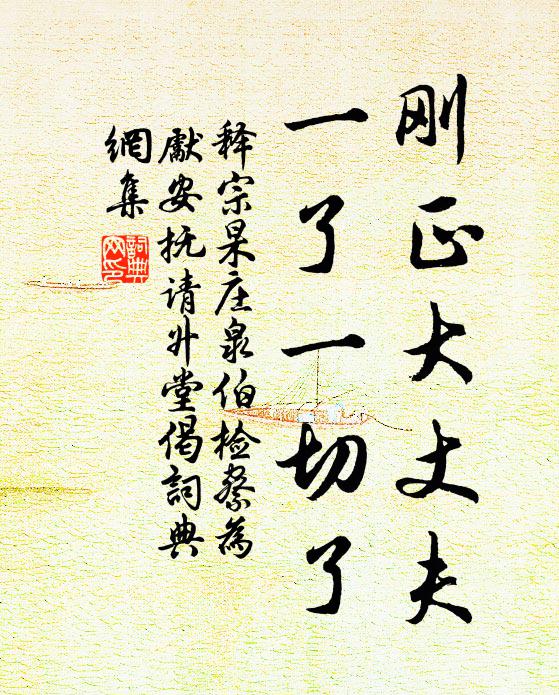 刚正大丈夫
一了一切了
释宗杲庄泉伯检察为
献安抚请升堂偈詞典
網集
詞典
网印